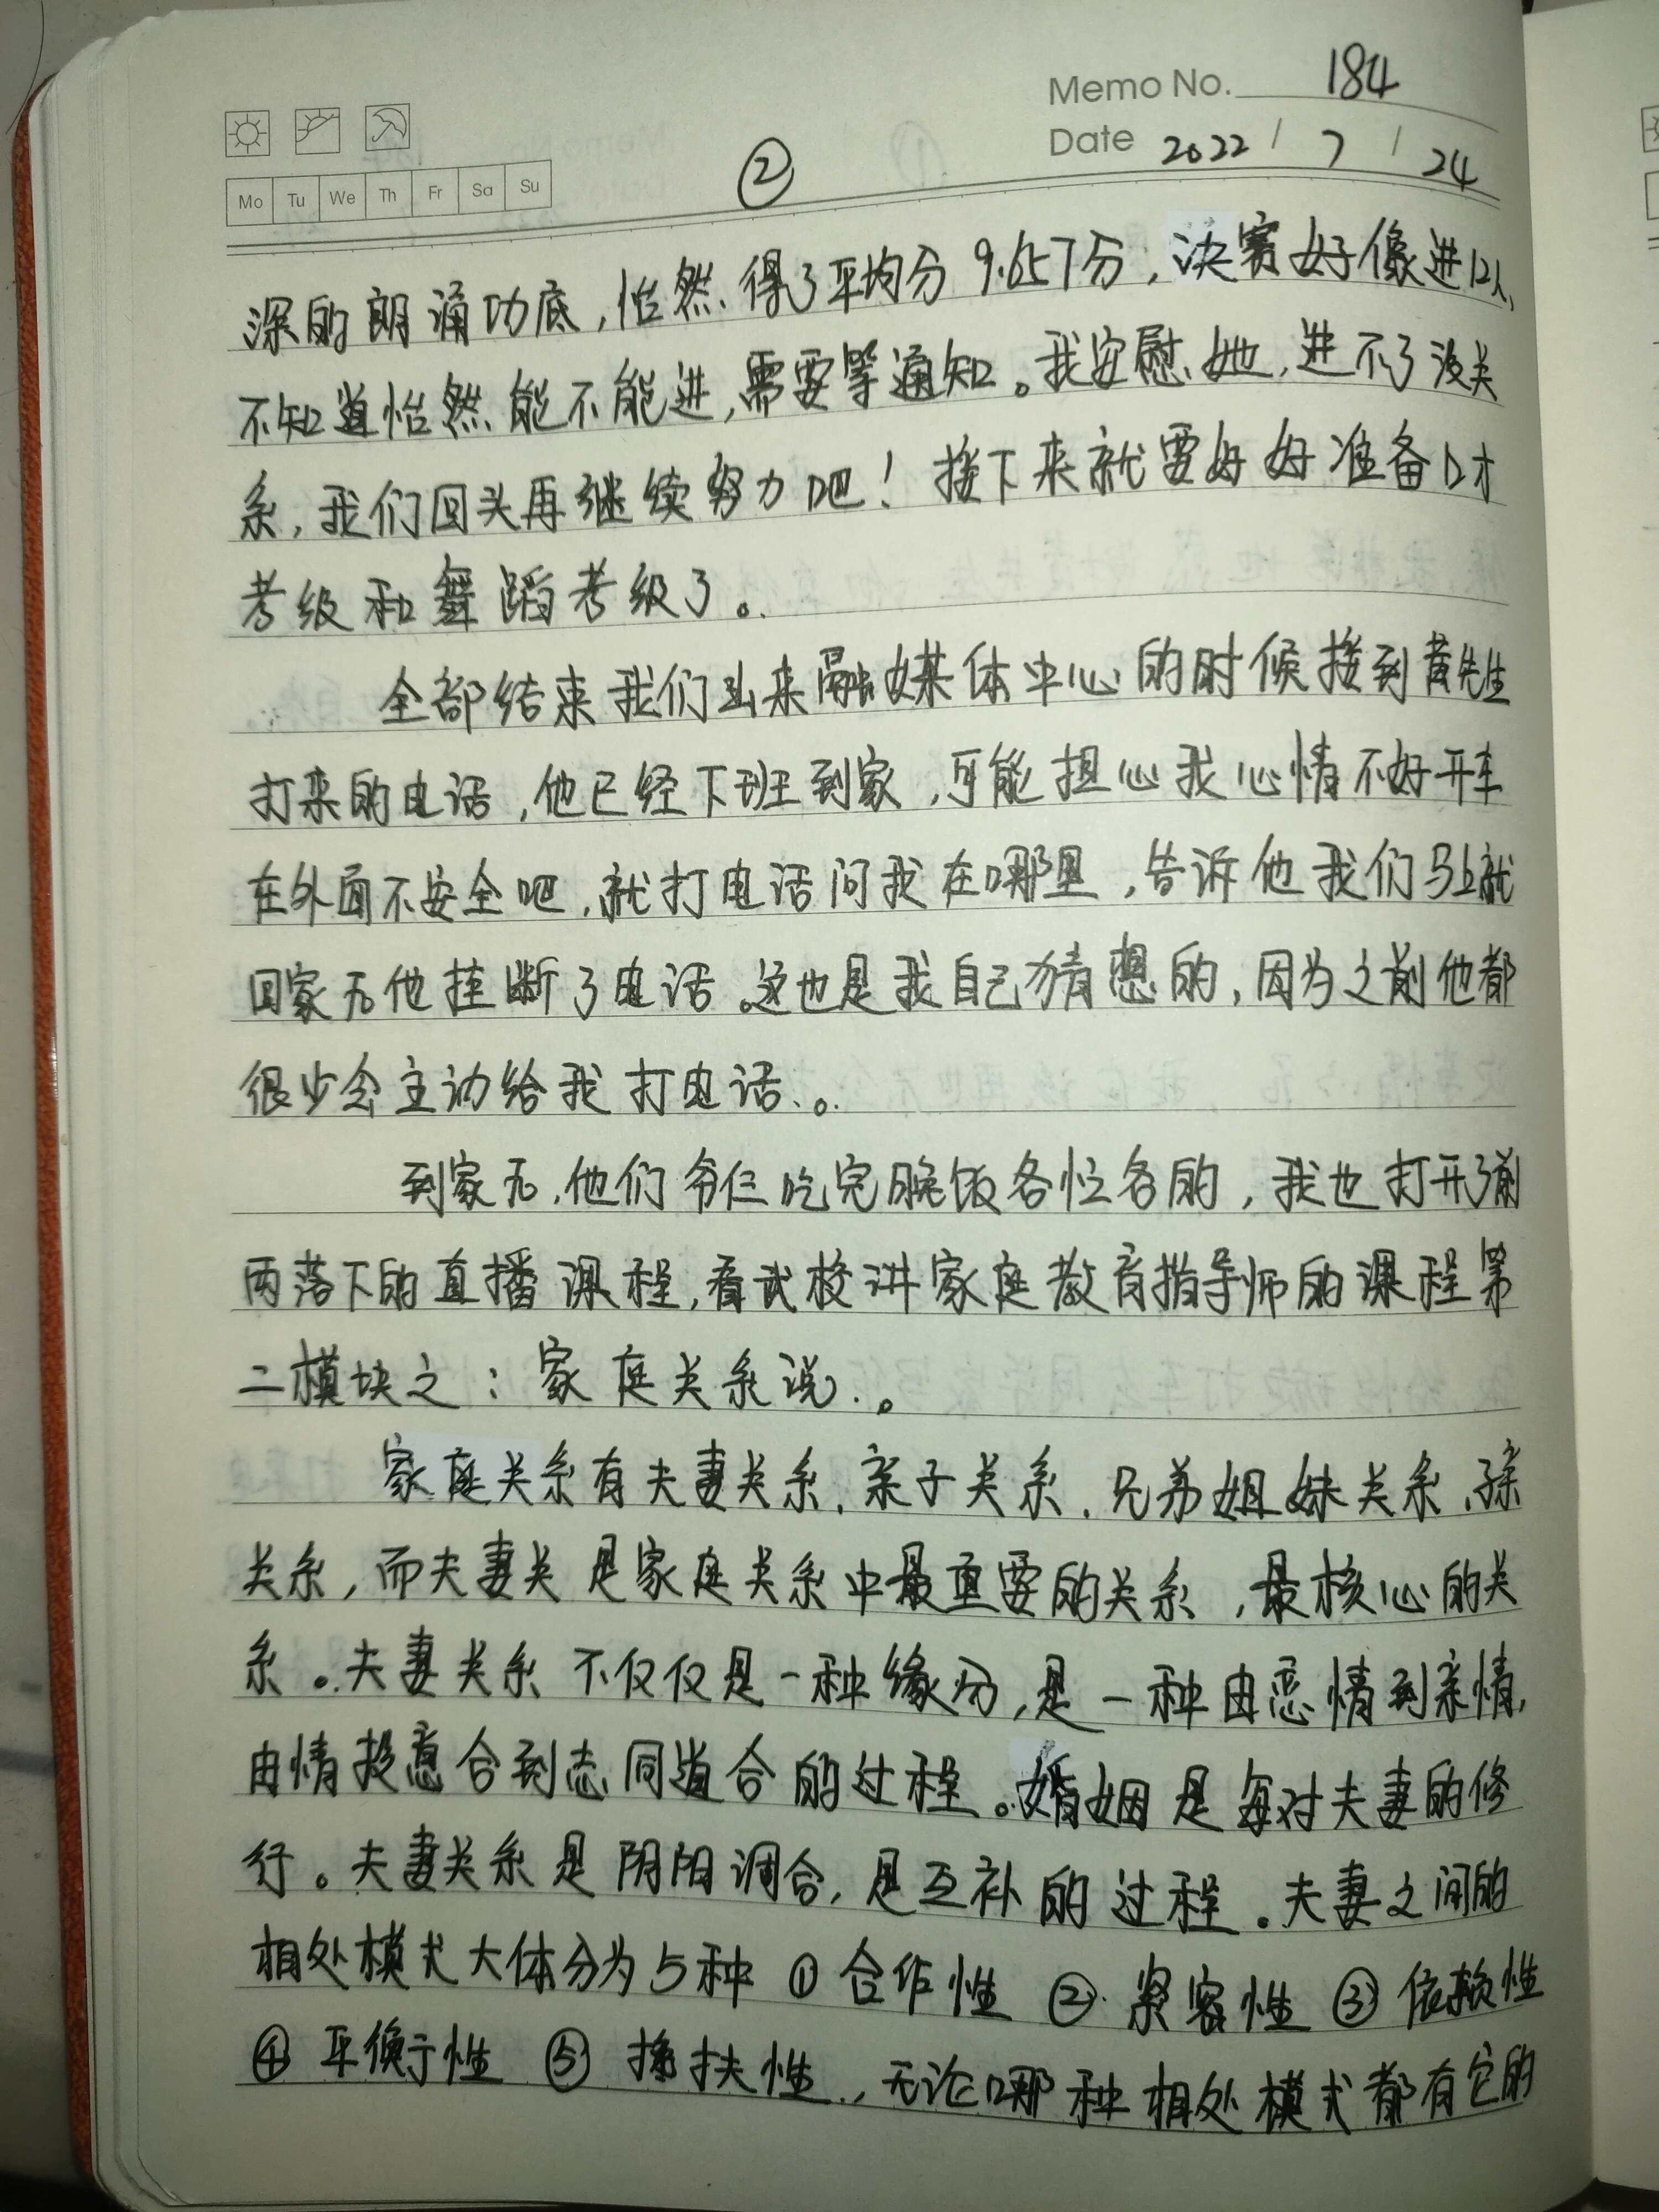 Memo No. 184
Date 2022 / 7 / 24
Mo Tu We Th Fr Sa Su
②
深的朗诵功底,怡然得了平均分9.657分,决赛好像进12人,
不知道怡然能不能进,需要等通知。我安慰她,进不了没关
系,我们回头再继续努力吧!接下来就要好好准备口才
考级和舞蹈考级了。
全部结束我们出来融媒体中心的时候接到黄先生
打来的电话,他已经下班到家,可能担心我心情不好开车
在外面不安全吧,就打电话问我在哪里,告诉他我们马上就
回家后他挂断了电话。这也是我自己猜想的,因为之前他都
很少会主动给我打电话。
到家后,他们爷仨吃完晚饭各忙各的,我也打开了前
两落下的直播课程,看武校讲家庭教育指导师的课程第
二模块之:家庭关系说。
家庭关系有夫妻关系,亲子关系,兄弟姐妹关系,孙亲
关系,而夫妻关是家庭关系中最重要的关系,最核心的关
系。夫妻关系不仅仅是一种缘分,是一种由恋情到亲情,
由情投意合到志同道合的过程。婚姻是每对夫妻的修
行。夫妻关系是阴阳调合,是互补的过程。夫妻之间的
相处模式大体分为5种①合作性②紧密性③依赖性
④平衡性⑤搀扶性,无论哪种相处模式都有它的